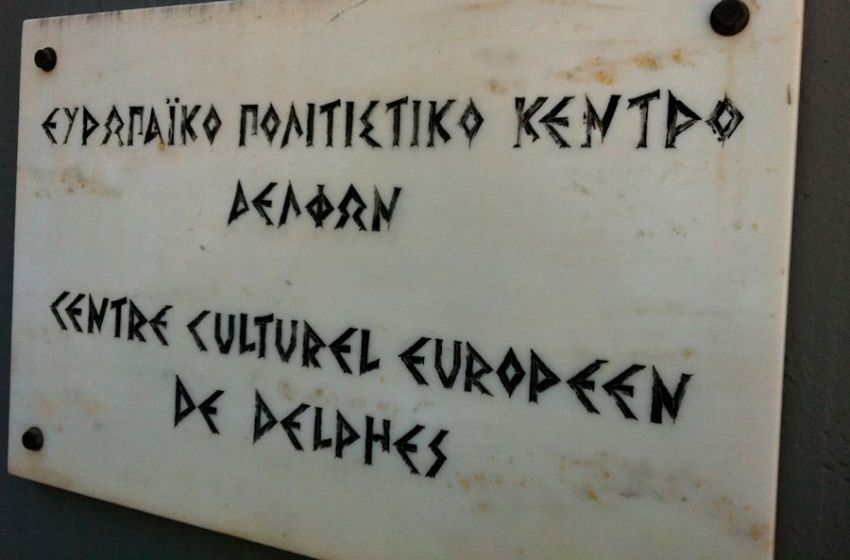 ΕΥΡΩΠΑΪΚΟ ΠΟΛΙΤΙΣΤΙΚΟ ΚΕΝΤΡΟ
ΔΕΛΦΩΝ
CENTRE CULTUREL EUROPEEN
DE DELPHES